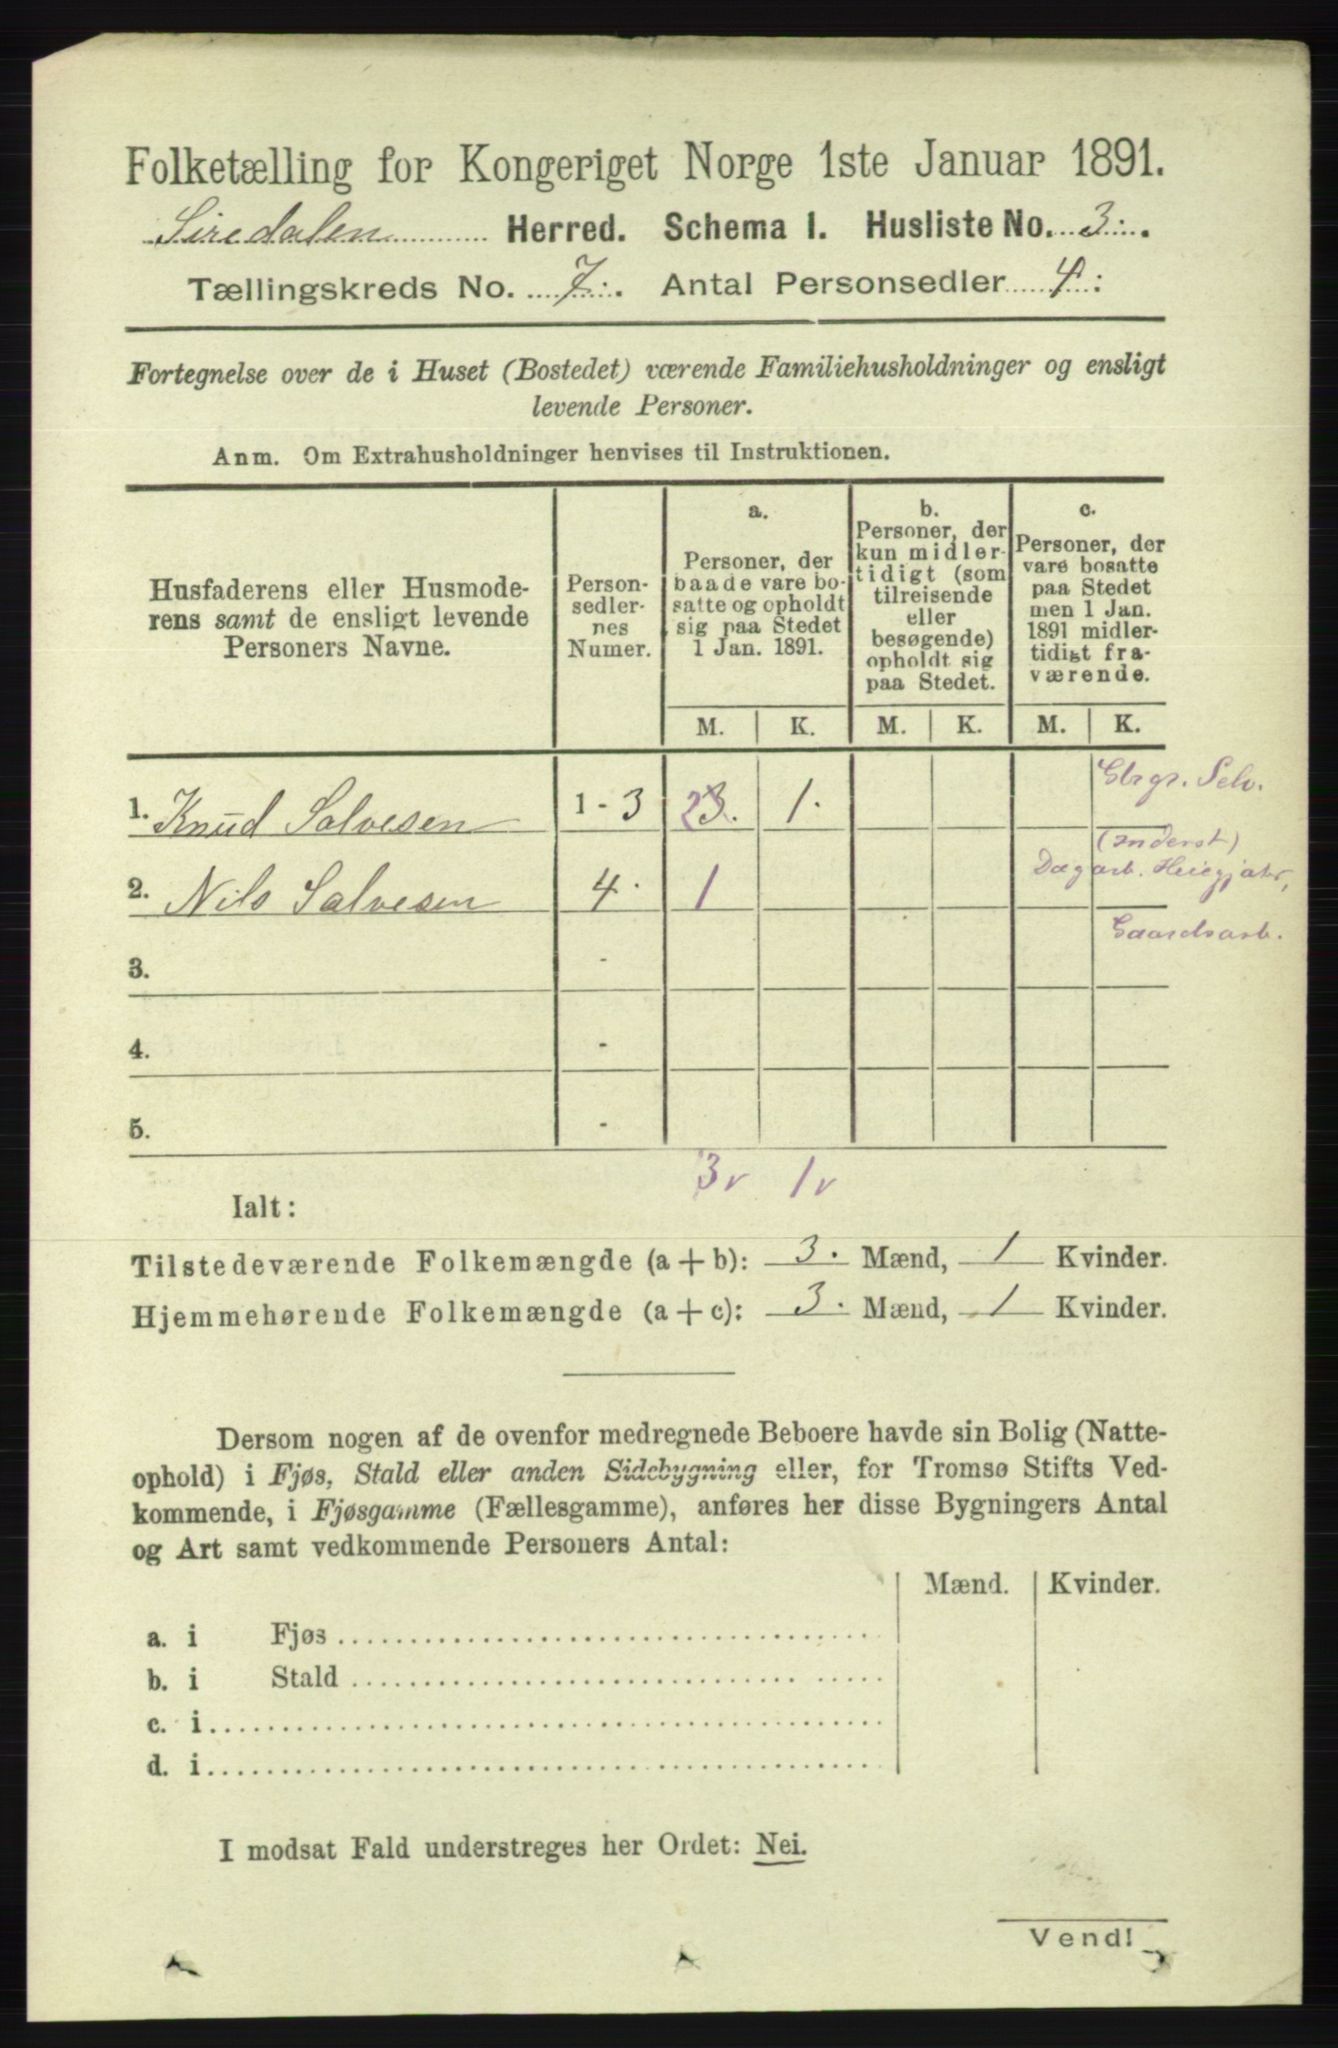 Folketælling for Kongeriget Norge 1ste Januar 1891.
Siredalen Herred. Schema 1. Husliste No. 3.
Tællingskreds No. 7. Antal Personsedler 4.
Fortegnelse over de i Huset (Bostedet) værende Familiehusholdninger og ensligt
levende Personer.
Anm. Om Extrahusholdninger henvises til Instruktionen.
Husfaderens eller Husmode-
rens samt de ensligt levende
Personers Navne.
Person-
sedler-
nes
Numer.
a.
Personer, der
baade vare bo-
satte og opholdt
sig paa Stedet
1 Jan. 1891.
b.
Personer, der
kun midler-
tidigt (som
tilreisende
eller
besøgende)
opholdt sig
paa Stedet.
c.
Personer, der
vare bosatte
paa Stedet
men 1 Jan.
1891 midler-
tidigt fra-
værende.
M. K. M. K. M. K.
1. Knud Salvesen 1 - 3 1. Gbrgr. Selv.
(Inderst)
2. Nils Salvesen 4. 1 Dagarb. Heiegjæter,
Gaardsarb.
3. -
4. -
5. -
3 v 1 v
Ialt:
Tilstedeværende Folkemængde (a + b): 3. Mænd, 1 Kvinder.
Hjemmehørende Folkemængde (a + c): 3. Mænd, 1 Kvinder.
Dersom nogen af de ovenfor medregnede Beboere havde sin Bolig (Natte-
ophold) i Fjøs, Stald eller anden Sidebygning eller, for Tromsø Stifts Ved-
kommende, i Fjøsgamme (Fællesgamme), anføres her disse Bygningers Antal
og Art samt vedkommende Personers Antal:
Mænd. Kvinder.
a. i Fjøs
b. i Stald
c. i
d. i
I modsat Fald understreges her Ordet: Nei.
Vend!